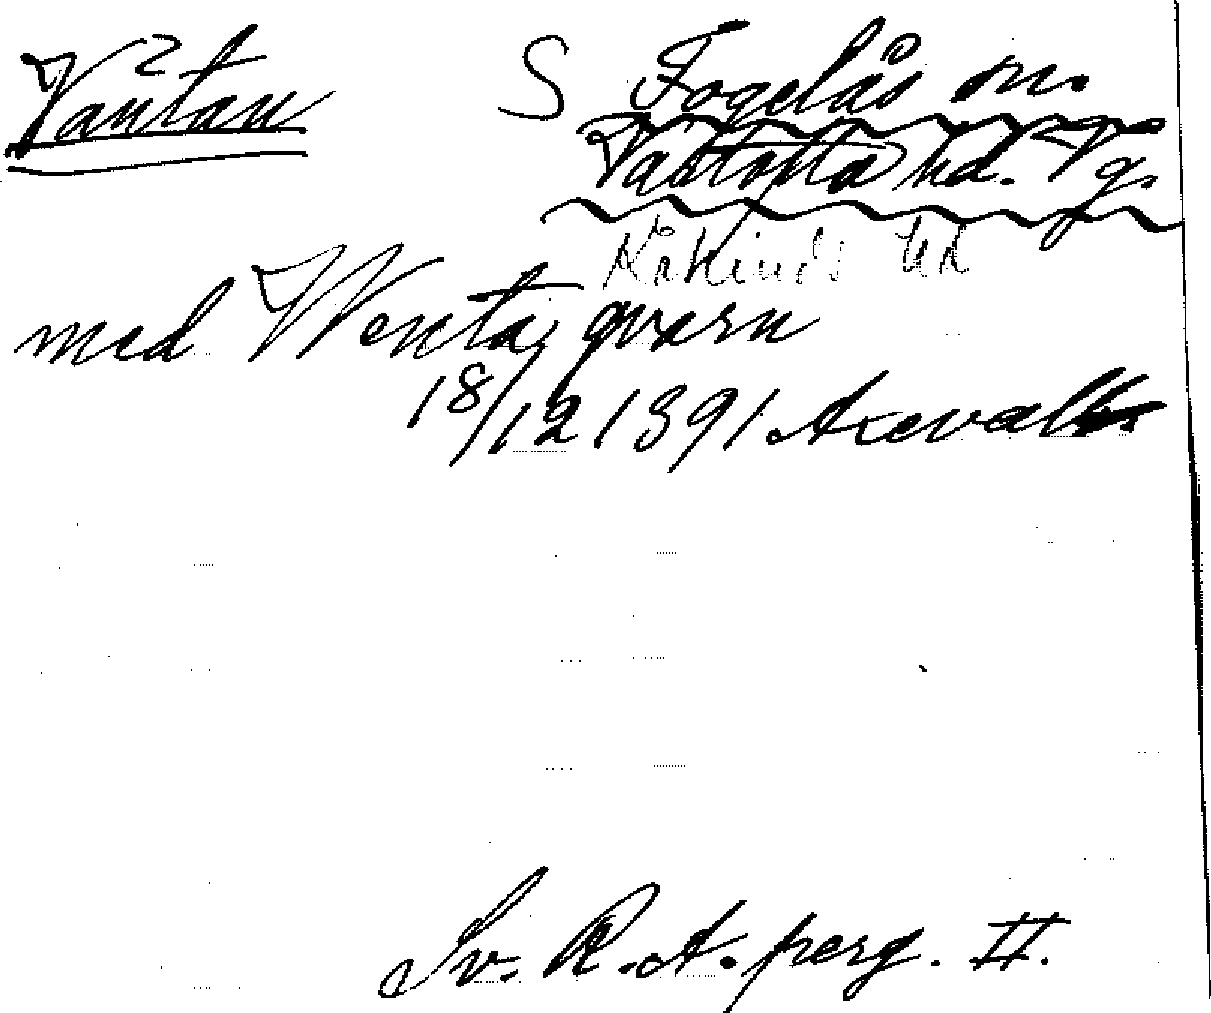 Väntan S Fogelås sn.
Valtofta hd. Vg.
Kåkinds hd
med Wentaqværn
18/12 1391 Axevall
Sv. R.A. perg. II.